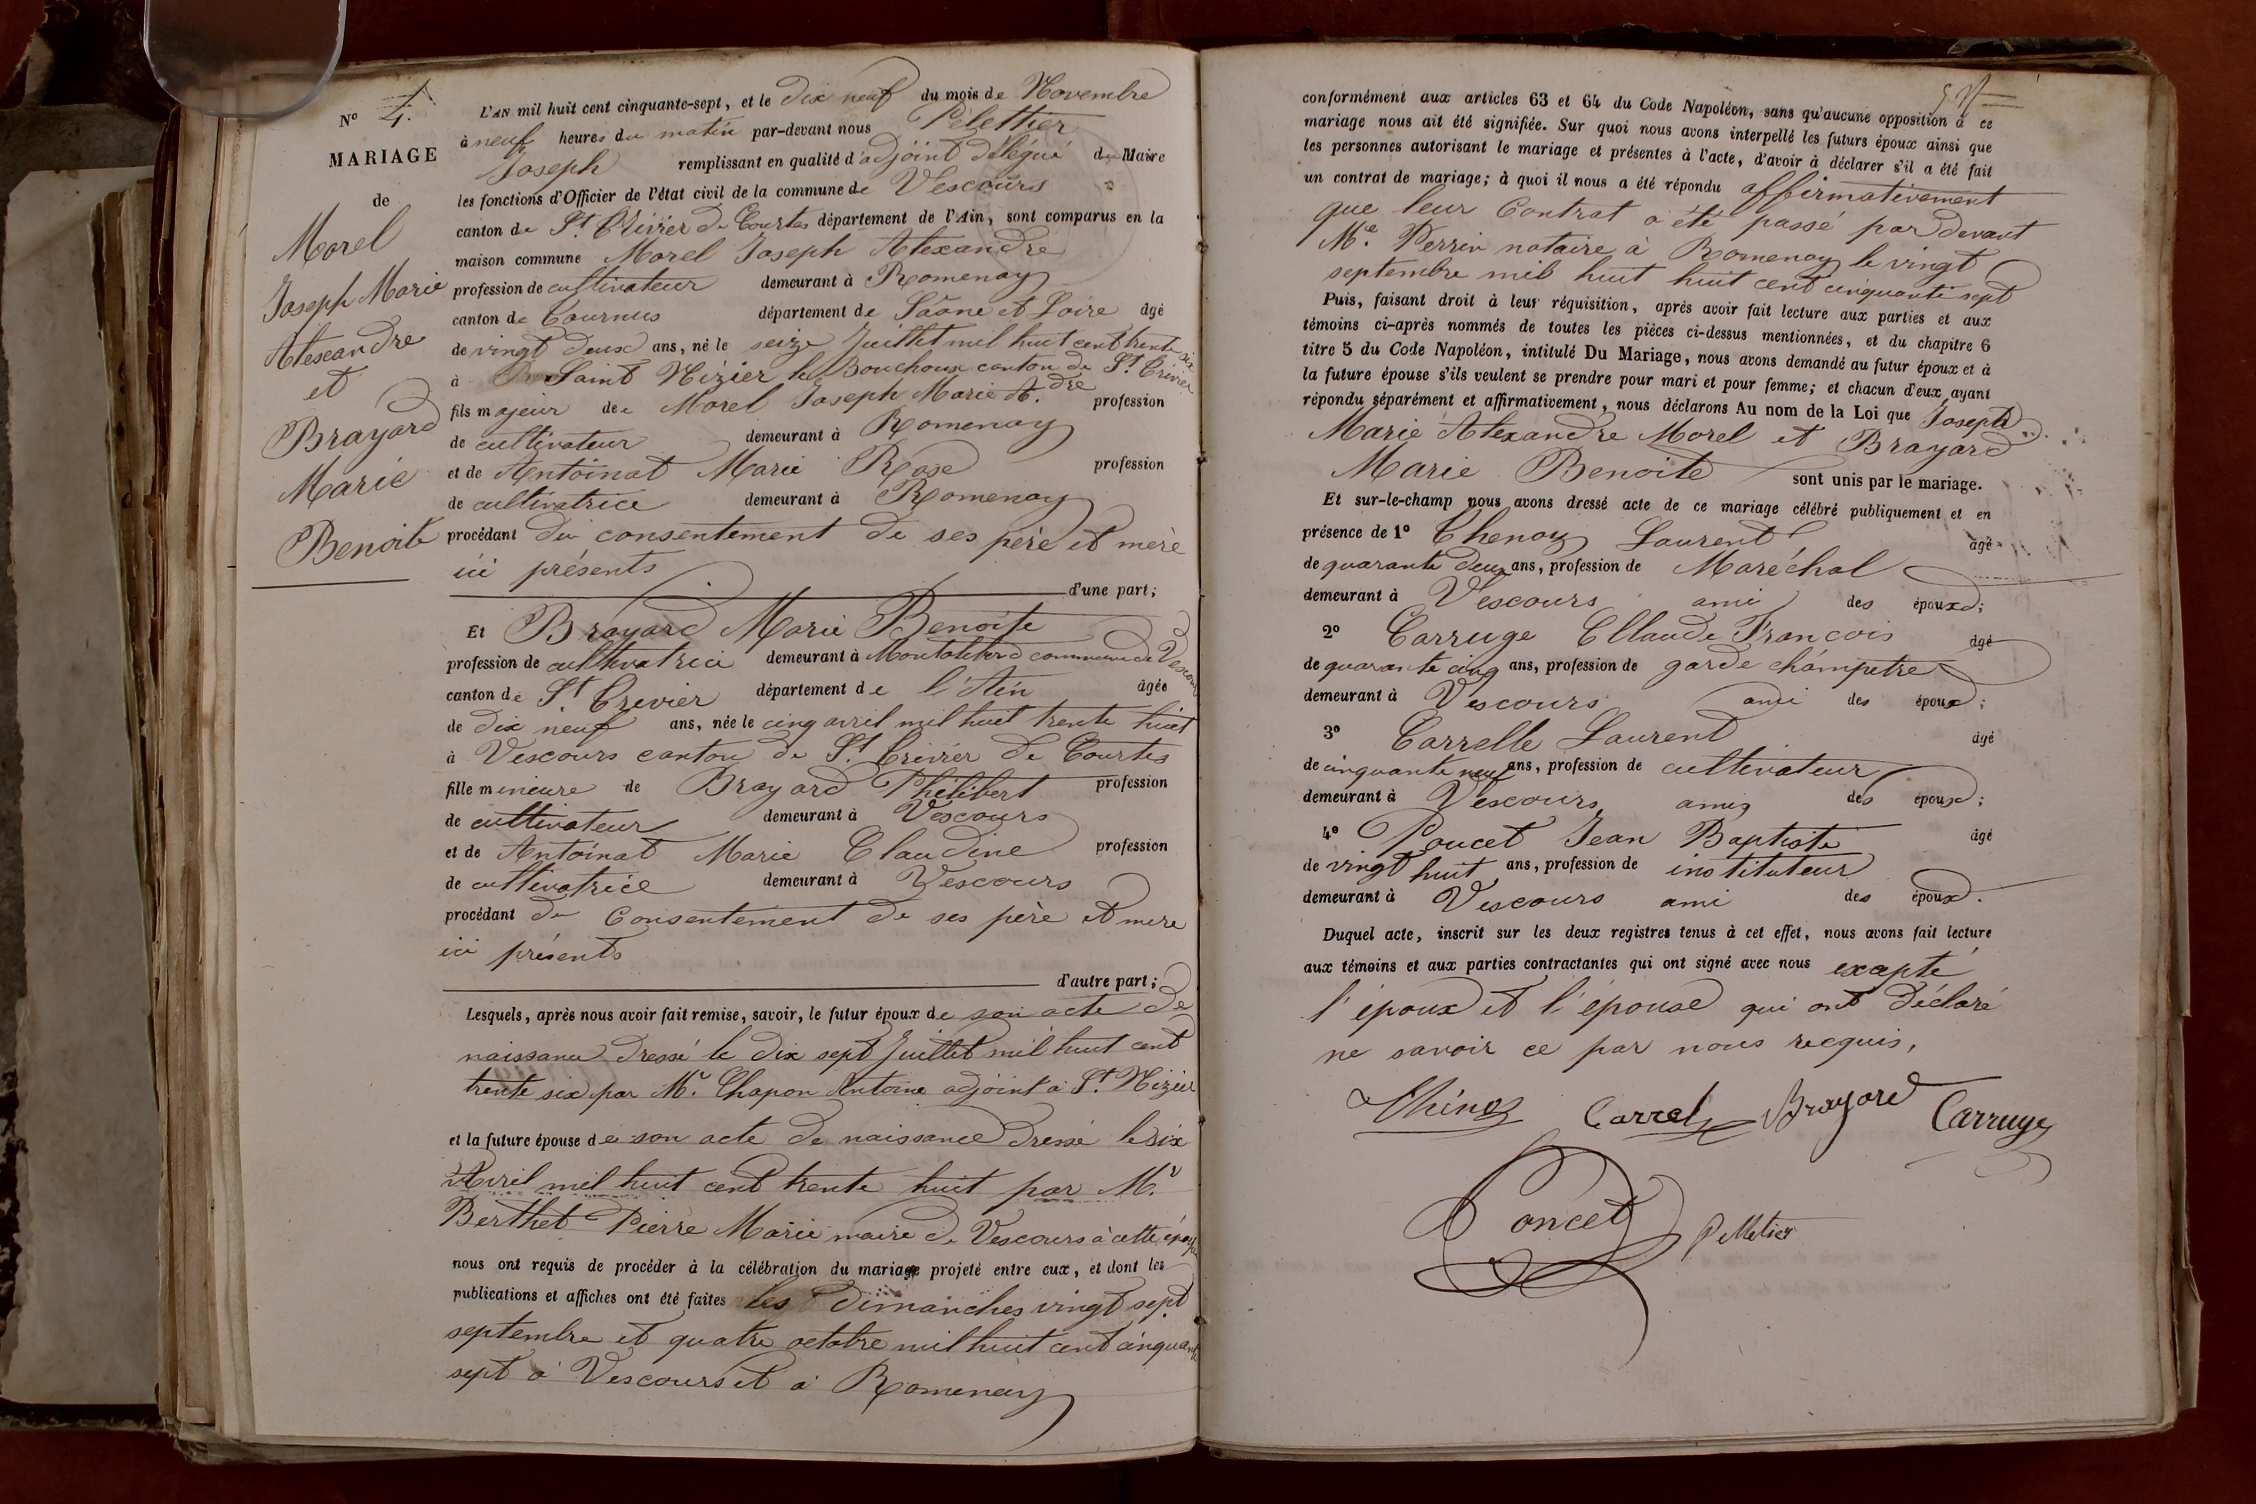 N° 4.
MARIAGE
de
Morel
Joseph Marie
Alexandre
et
Brayard
Marie
Benoite
L'AN mil huit cent cinquante-sept, et le dix neuf du mois de Novembre
à neuf heures du matin par-devant nous Pelletier
Joseph remplissant en qualité d'adjoint délégué du Maire
les fonctions d'Officier de l'état civil de la commune de Vescours
canton de St. Trivier de Courtes département de l'Ain, sont comparus en la
maison commune Morel Joseph Alexandre
profession de cultivateur demeurant à Romenay
canton de Tournus département de Saône et Loire âgé
de vingt deux ans, né le seize Juillet mil huit cent trente six
à Saint Nizier le Bouchoux canton de St. Trivier
fils majeur de Morel Joseph Marie A.dre profession
de cultivateur demeurant à Romenay
et de Antoinat Marie Rose profession
de cultivatrice demeurant à Romenay
procédant du consentement de ses père et mère
ici présents
d'une part;
Et Brayard Marie Benoite
profession de cultivatrice demeurant à commune de Vescours
canton de St. Trevier département de l'Ain âgée
de dix neuf ans, née le cinq avril mil huit trente huit
à Vescours canton de St. Trivier de Courtes
fille mineure de Brayard Philibert profession
de cultivateur demeurant à Vescours
et de Antoinat Marie Claudine profession
de cultivatrice demeurant à Vescours
procédant du Consentement de ses père et mere
ici présents
d'autre part;
Lesquels, après nous avoir fait remise, savoir, le futur époux de son acte de
naissance dressé le dix sept Juillet mil huit cent
trente six par Mr. Chapon Antoine adjoint à St. Nizier
et la future épouse de son acte de naissance dressé le six
Avril mil huit cent trente huit par Mr.
Berthet Pierre Marie maire de Vescours à cette époque
nous ont requis de procéder à la célébration du mariage projeté entre eux, et dont les
publications et affiches ont été faites les dimanches vingt sept
septembre et quatre octobre mil huit cent cinquante
sept à Vescours et à Romenay
conformément aux articles 63 et 64 du Code Napoléon, sans qu'aucune opposition à ce
mariage nous ait été signifiée. Sur quoi nous avons interpellé les futurs époux ainsi que
les personnes autorisant le mariage et présentes à l'acte, d'avoir à déclarer s'il a été fait
un contrat de mariage; à quoi il nous a été répondu affirmativement
que leur Contrat a été passé par devant
Me. Perrin notaire à Romenay le vingt
septembre mil huit huit cent cinquante sept
Puis, faisant droit à leur réquisition, après avoir fait lecture aux parties et aux
témoins ci-après nommés de toutes les pièces ci-dessus mentionnées, et du chapitre 6
titre 5 du Code Napoléon, intitulé Du Mariage, nous avons demandé au futur époux et à
la future épouse s'ils veulent se prendre pour mari et pour femme; et chacun d'eux ayant
répondu séparément et affirmativement, nous déclarons Au nom de la Loi que Joseph
Marie Alexandre Morel et Brayard
Marie Benoite sont unis par le mariage.
Et sur-le-champ nous avons dressé acte de ce mariage célébré publiquement et en
présence de 1° Thenoz Laurent âgé
de quarante deux ans, profession de Maréchal
demeurant à Vescours ami des époux;
2° Carruge Cllaude François âgé
de quarante cinq ans, profession de garde champetre
demeurant à Vescours ami des époux;
3° Carrelle Laurent âgé
de cinquante neuf ans, profession de cultivateur
demeurant à Vescours amis des époux;
4° Poucet Jean Baptiste âgé
de vingt huit ans, profession de instituteur
demeurant à Vescours ami des époux.
Duquel acte, inscrit sur les deux registres tenus à cet effet, nous avons fait lecture
aux témoins et aux parties contractantes qui ont signé avec nous excepté
l'époux et l'épouse qui ont déclaré
ne savoir ce par nous recquis,
Thénoz Carrel Brayard Carruge
Poncet Pelletier